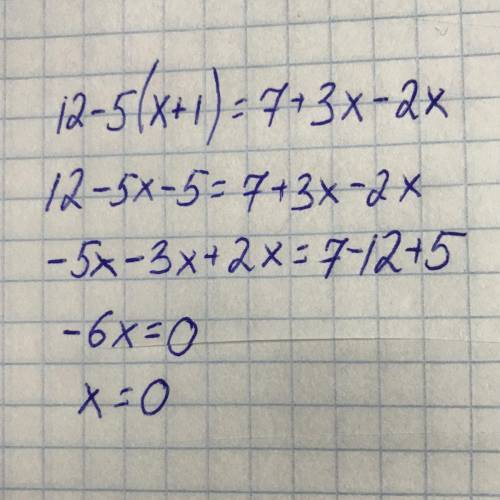 12-5(x+1)=7+3x-2x
12-5x-5=7+3x-2x
-5x-3x+2x=7-12+5
-6x=0
x=0